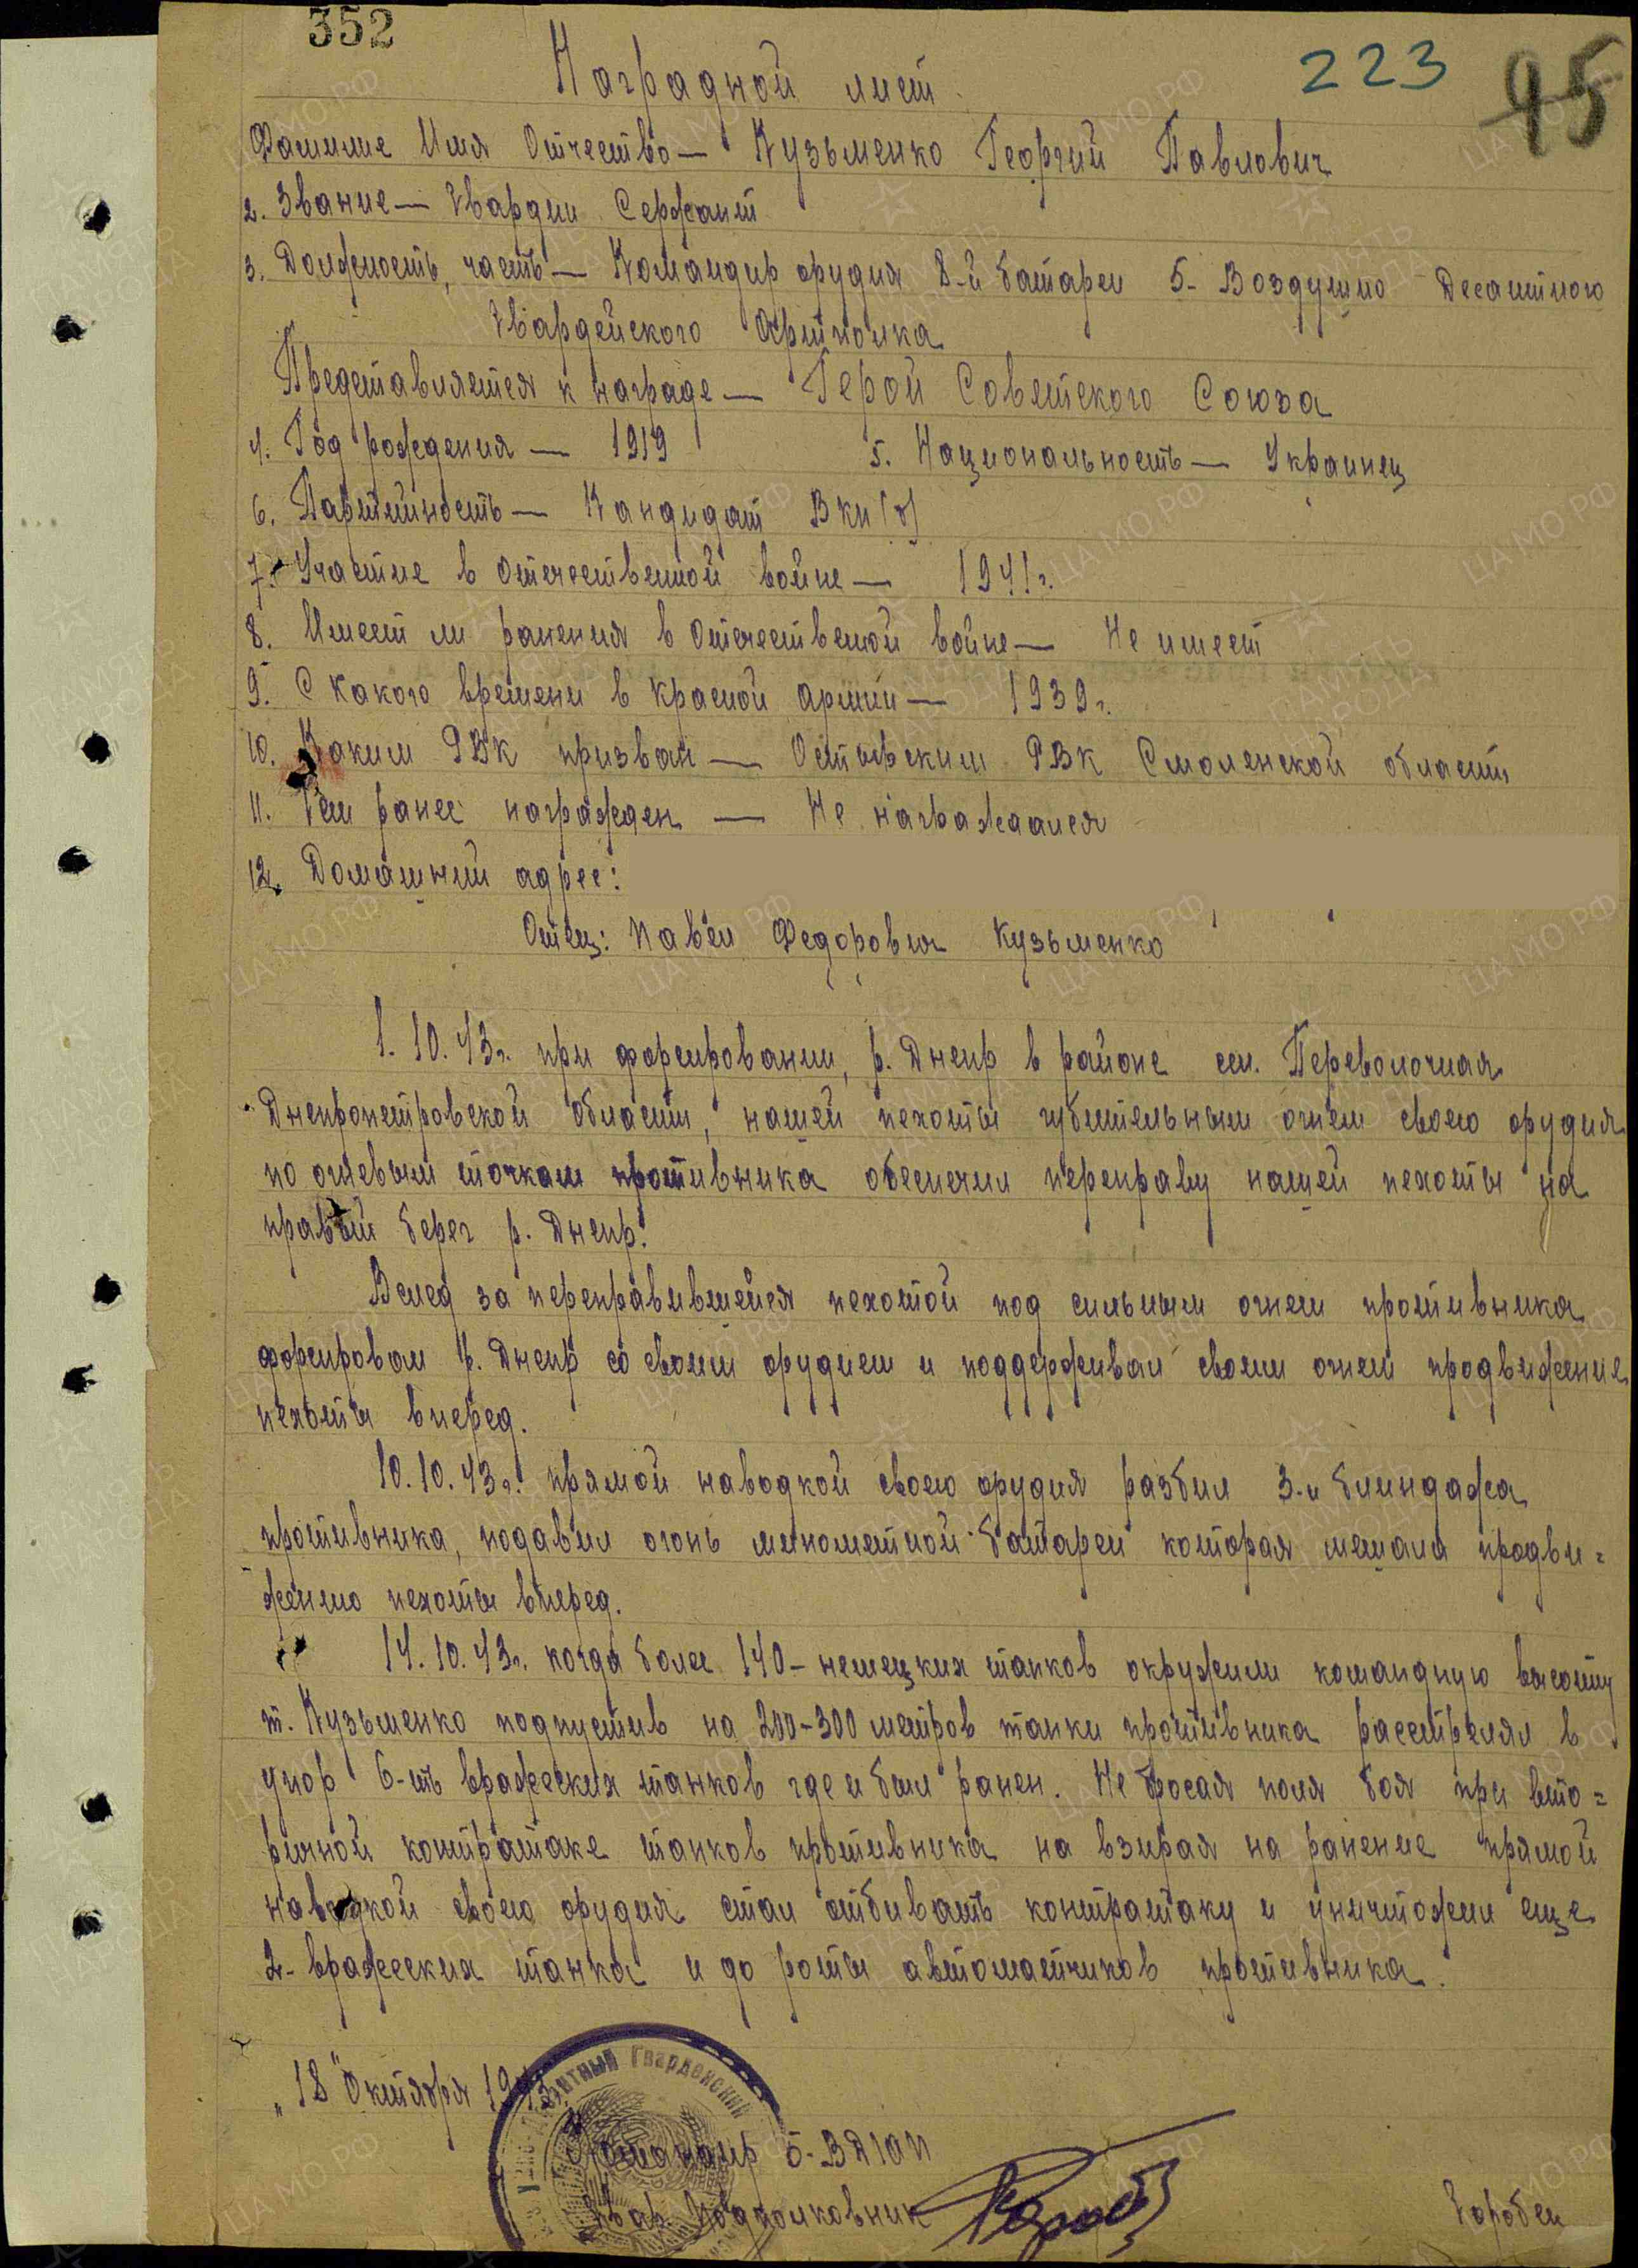 352
223
95
Наградной лист
Фамилие Имя Отчество — Кузьменко Георгий Павлович
2. Звание — Гвардии Сержант
3. Должность, часть — Командир орудия 8-й батареи 5- Воздушно Десантного
Гвардейского Артполка
Представляется к награде — Герой Советского Союза
4. Год рождения — 1919 5. Национальность — Украинец
6. Партийность — Кандидат ВКП(б)
7. Участие в отечественной войне — 1941 г.
8. Имеет ли ранения в отечественной войне — Не имеет
9. С какого времени в красной армии — 1939 г.
10. Каким РВК призван — РВК Смоленской области
11. Чем ранее награжден — Не награждался
12. Домашний адрес:
Отец: Павел Федорович Кузьменко
1.10.43г. при форсировании, р. Днепр в районе сел. Переволочная
Днепропетровской области, нашей пехоты губительным огнем своего орудия
по огневым точкам противника обеспечил переправу нашей пехоты на
правый берег р. Днепр.
Вслед за переправившейся пехотой под сильным огнем противника
форсировал р. Днепр со своим орудием и поддерживал своим огнем продвижение
пехоты вперед.
10.10.43г. прямой наводкой своего орудия разбил 3-и блиндажа
противника, подавил огонь минометной батареи которая мешала продви=
жению пехоты вперед.
14.10.43г. когда более 140- немецких танков окружили командную высоту
т. Кузьменко подпустив на 200-300 метров танки противника расстрелял в
упор 6-ть вражеских танков где и был ранен. Не бросая поля боя при вто=
ричной контратаке танков противника на взирая на ранение прямой
наводкой своего орудия стал отбивать контратаку и уничтожил еще
2- вражеских танка и до роты автоматчиков противника.
"18" Октября 1943
Десантный Гвардейский
Командир 5-ВДГАП
Гвар. Подполковник Горобец
ЦА МО РФ
ПАМЯТЬ НАРОДА